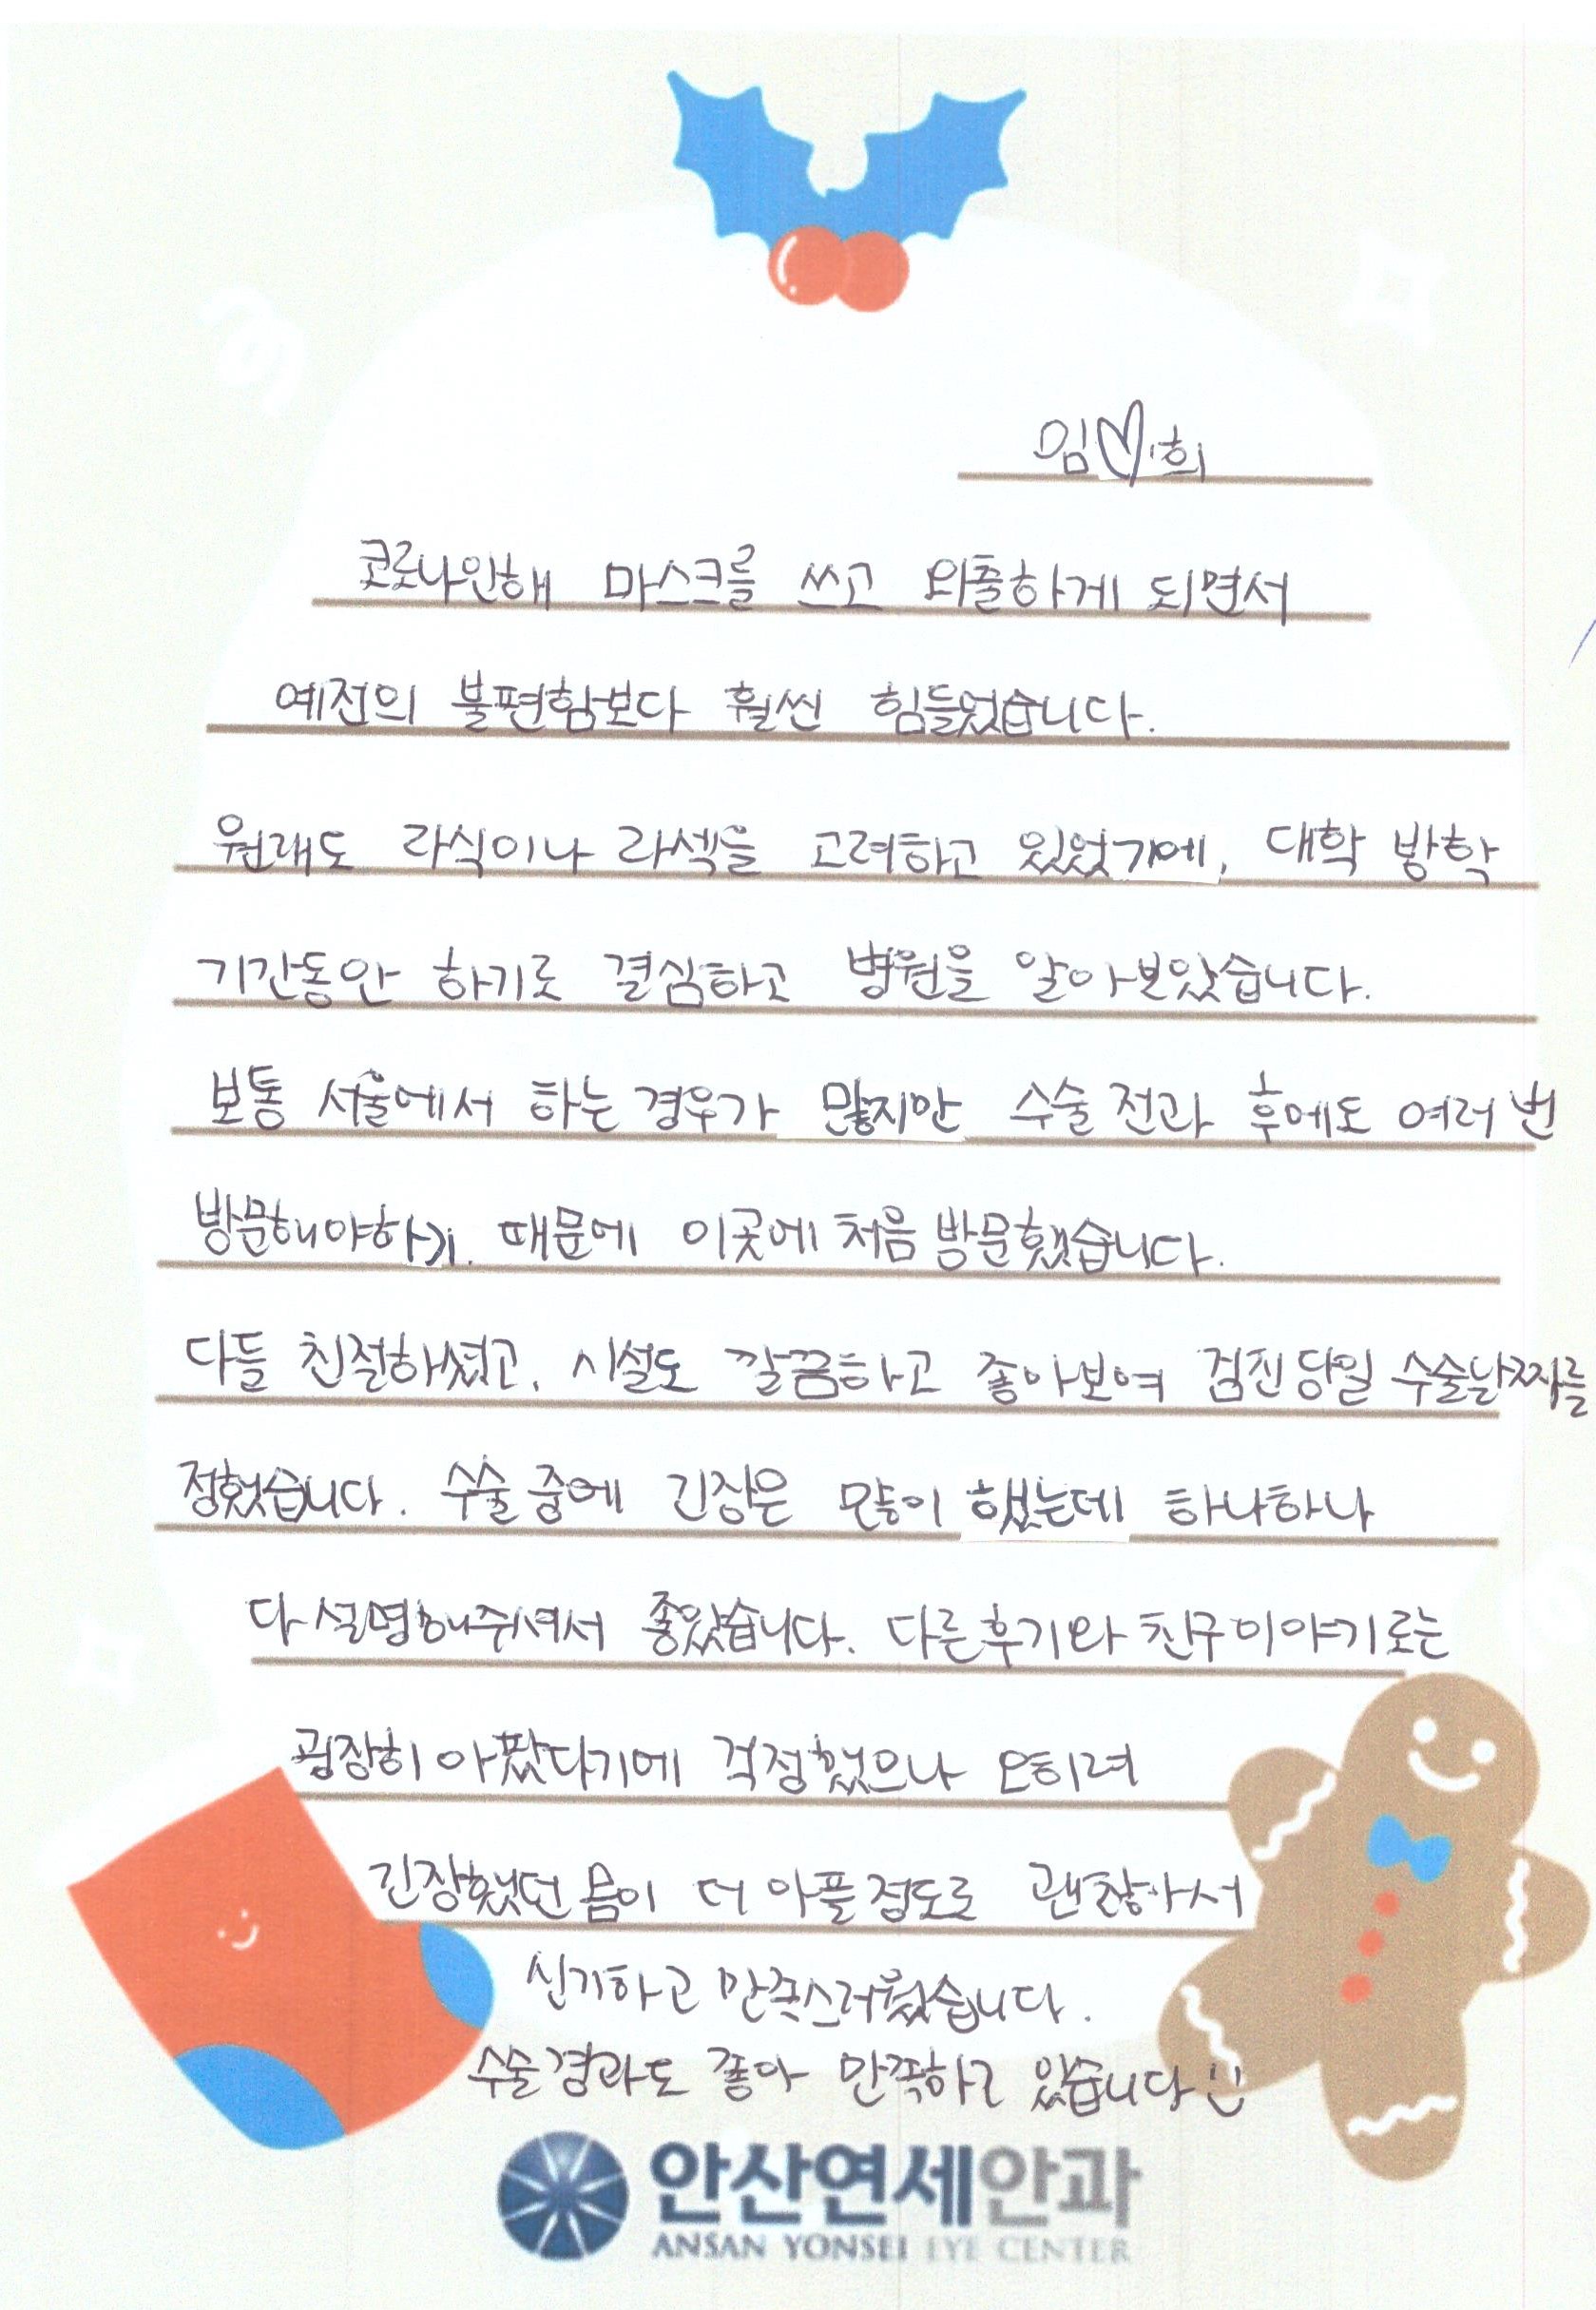 임♡희
코로나인해 마스크를 쓰고 외출하게 되면서
예전의 불편함보다 훨씬 힘들었습니다.
원래도 라식이나 라섹을 고려하고 있었기에, 대학 방학
기간동안 하기로 결심하고 병원을 알아보았습니다.
보통 서울에서 하는 경우가 많지만 수술 전과 후에도 여러 번
방문해야하기 때문에 이곳에 처음 방문했습니다.
다들 친절하셨고, 시설도 깔끔하고 좋아보여 검진당일 수술날짜를
정했습니다. 수술 중에 긴장은 많이 했는데 하나하나
다 설명해주셔서 좋았습니다. 다른 후기와 친구이야기로는
굉장히 아팠다기에 걱정했으나 오히려
긴장했던 몸이 더 아플정도로 괜찮아서
신기하고 만족스러웠습니다.
수술경과도 좋아 만족하고 있습니다 :)
안산연세안과
ANSAN YONSEI EYE CENTER